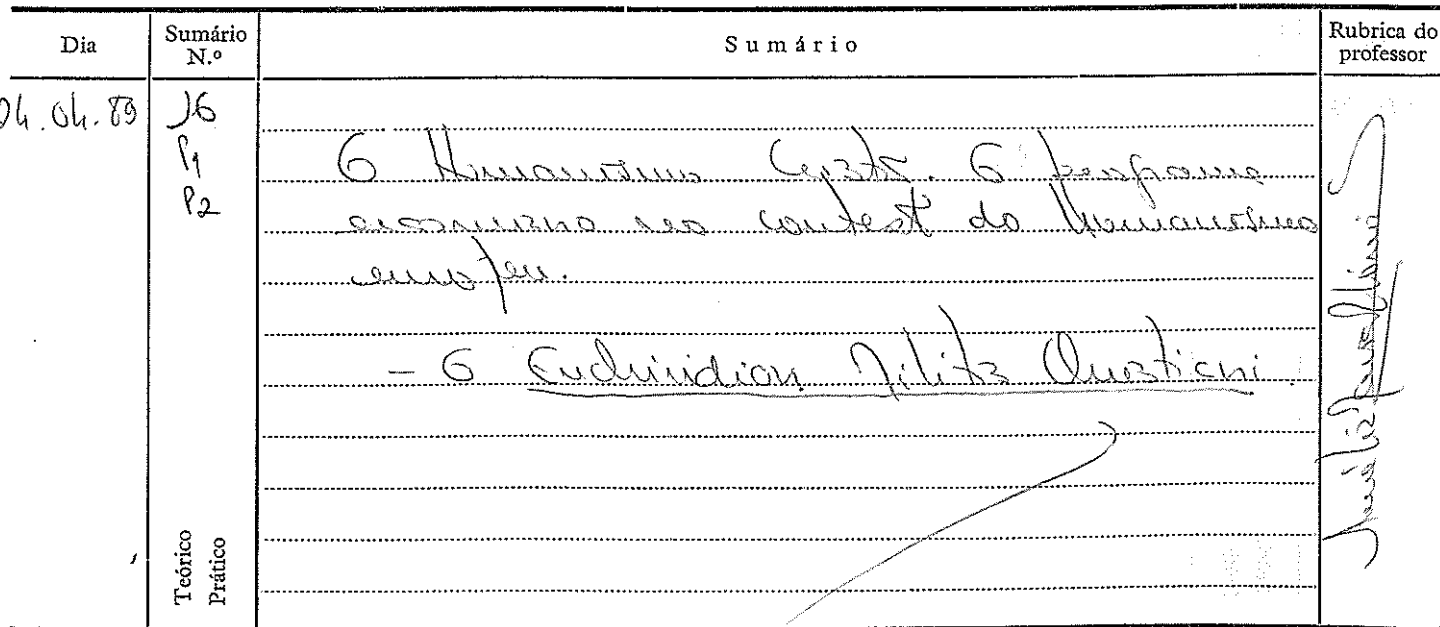 Dia
Sumário N.º
Sumário
Rubrica do professor
04.04.89
16
P1
P2
O Humanismo Cristão. O programa
erasmiano no contexto do Humanismo
europeu.
- O Enchiridion Militis Christiani.
Teórico
Prático